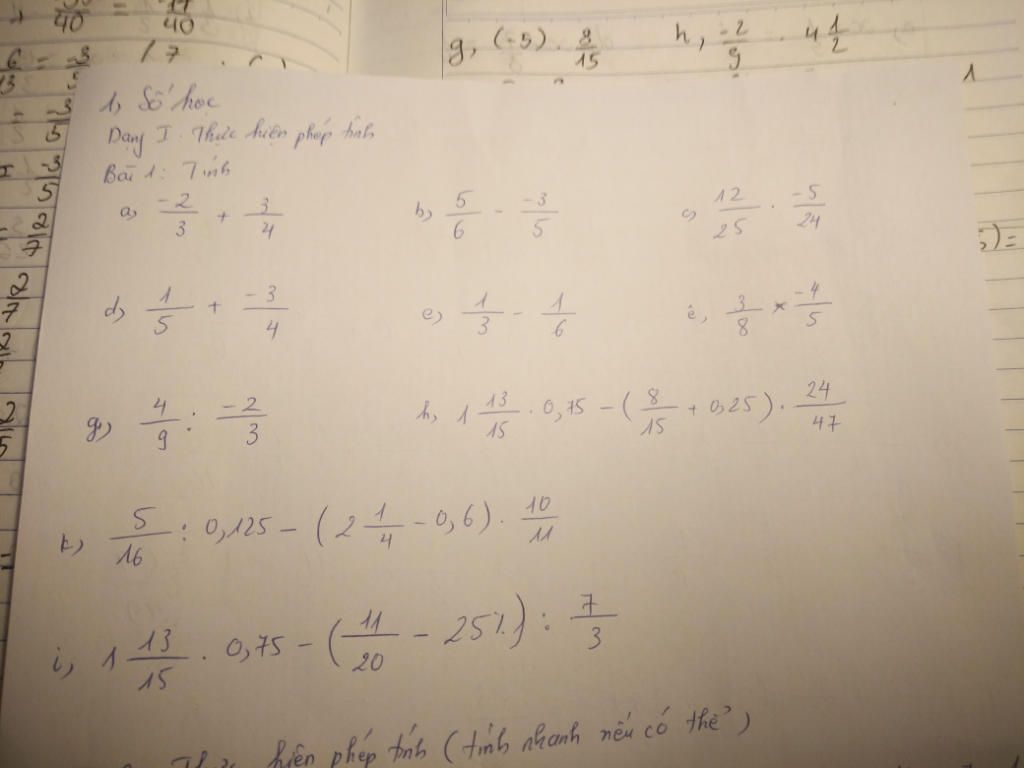 g, (-5) . 8/15 h, -2/9 . 4 1/2
1, Số học
Dạng I. Thực hiện phép tính
Bài 1: Tính
a, -2/3 + 3/4 b, 5/6 - -3/5 c, 12/25 . -5/24
d, 1/5 + -3/4 e, 1/3 - 1/6 ê, 3/8 × -4/5
g, 4/9 : -2/3 h, 1 13/15 . 0,75 - (8/15 + 0,25) . 24/47
k, 5/16 : 0,125 - (2 1/4 - 0,6) . 10/11
i, 1 13/15 . 0,75 - (11/20 - 25%) : 7/3
Thực hiện phép tính (tính nhanh nếu có thể)